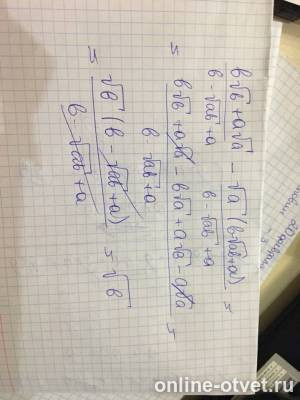 b√b + a√a − √a (b-√ab+a) =
b - √ab + a b - √ab + a
= b√b + a√a - b√a + a√b - a√a =
b √ab + a
= √b (b - √ab + a) = √b
b - √ab + a
online-otvet.ru